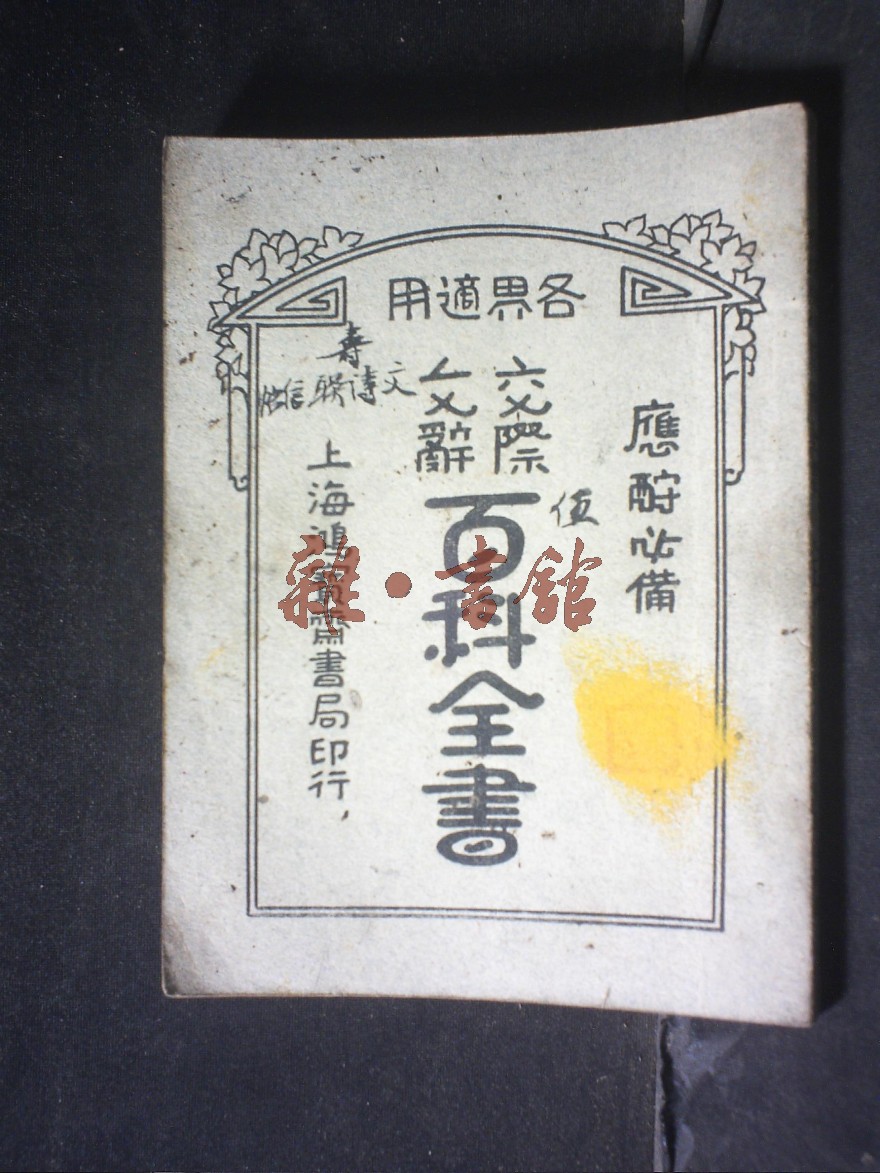 各界適用
應酧必備
交際
文辭
百科全書
伍
壽
文
詩
聯
信
上海鴻寶齋書局印行,
雜·書館